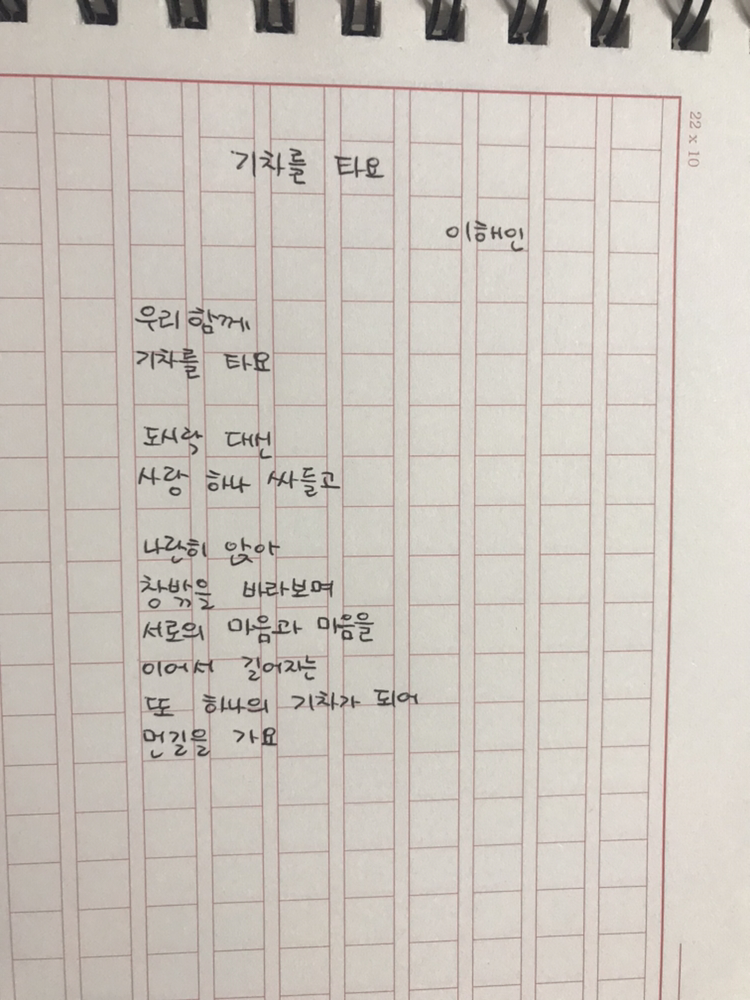 22 x 10
기차를 타요
이해인
우리 함께
기차를 타요
도시락 대신
사랑 하나 싸들고
나란히 앉아
창밖을 바라보며
서로의 마음과 마음을
이어서 길어자는
또 하나의 기차가 되어
먼길을 가요